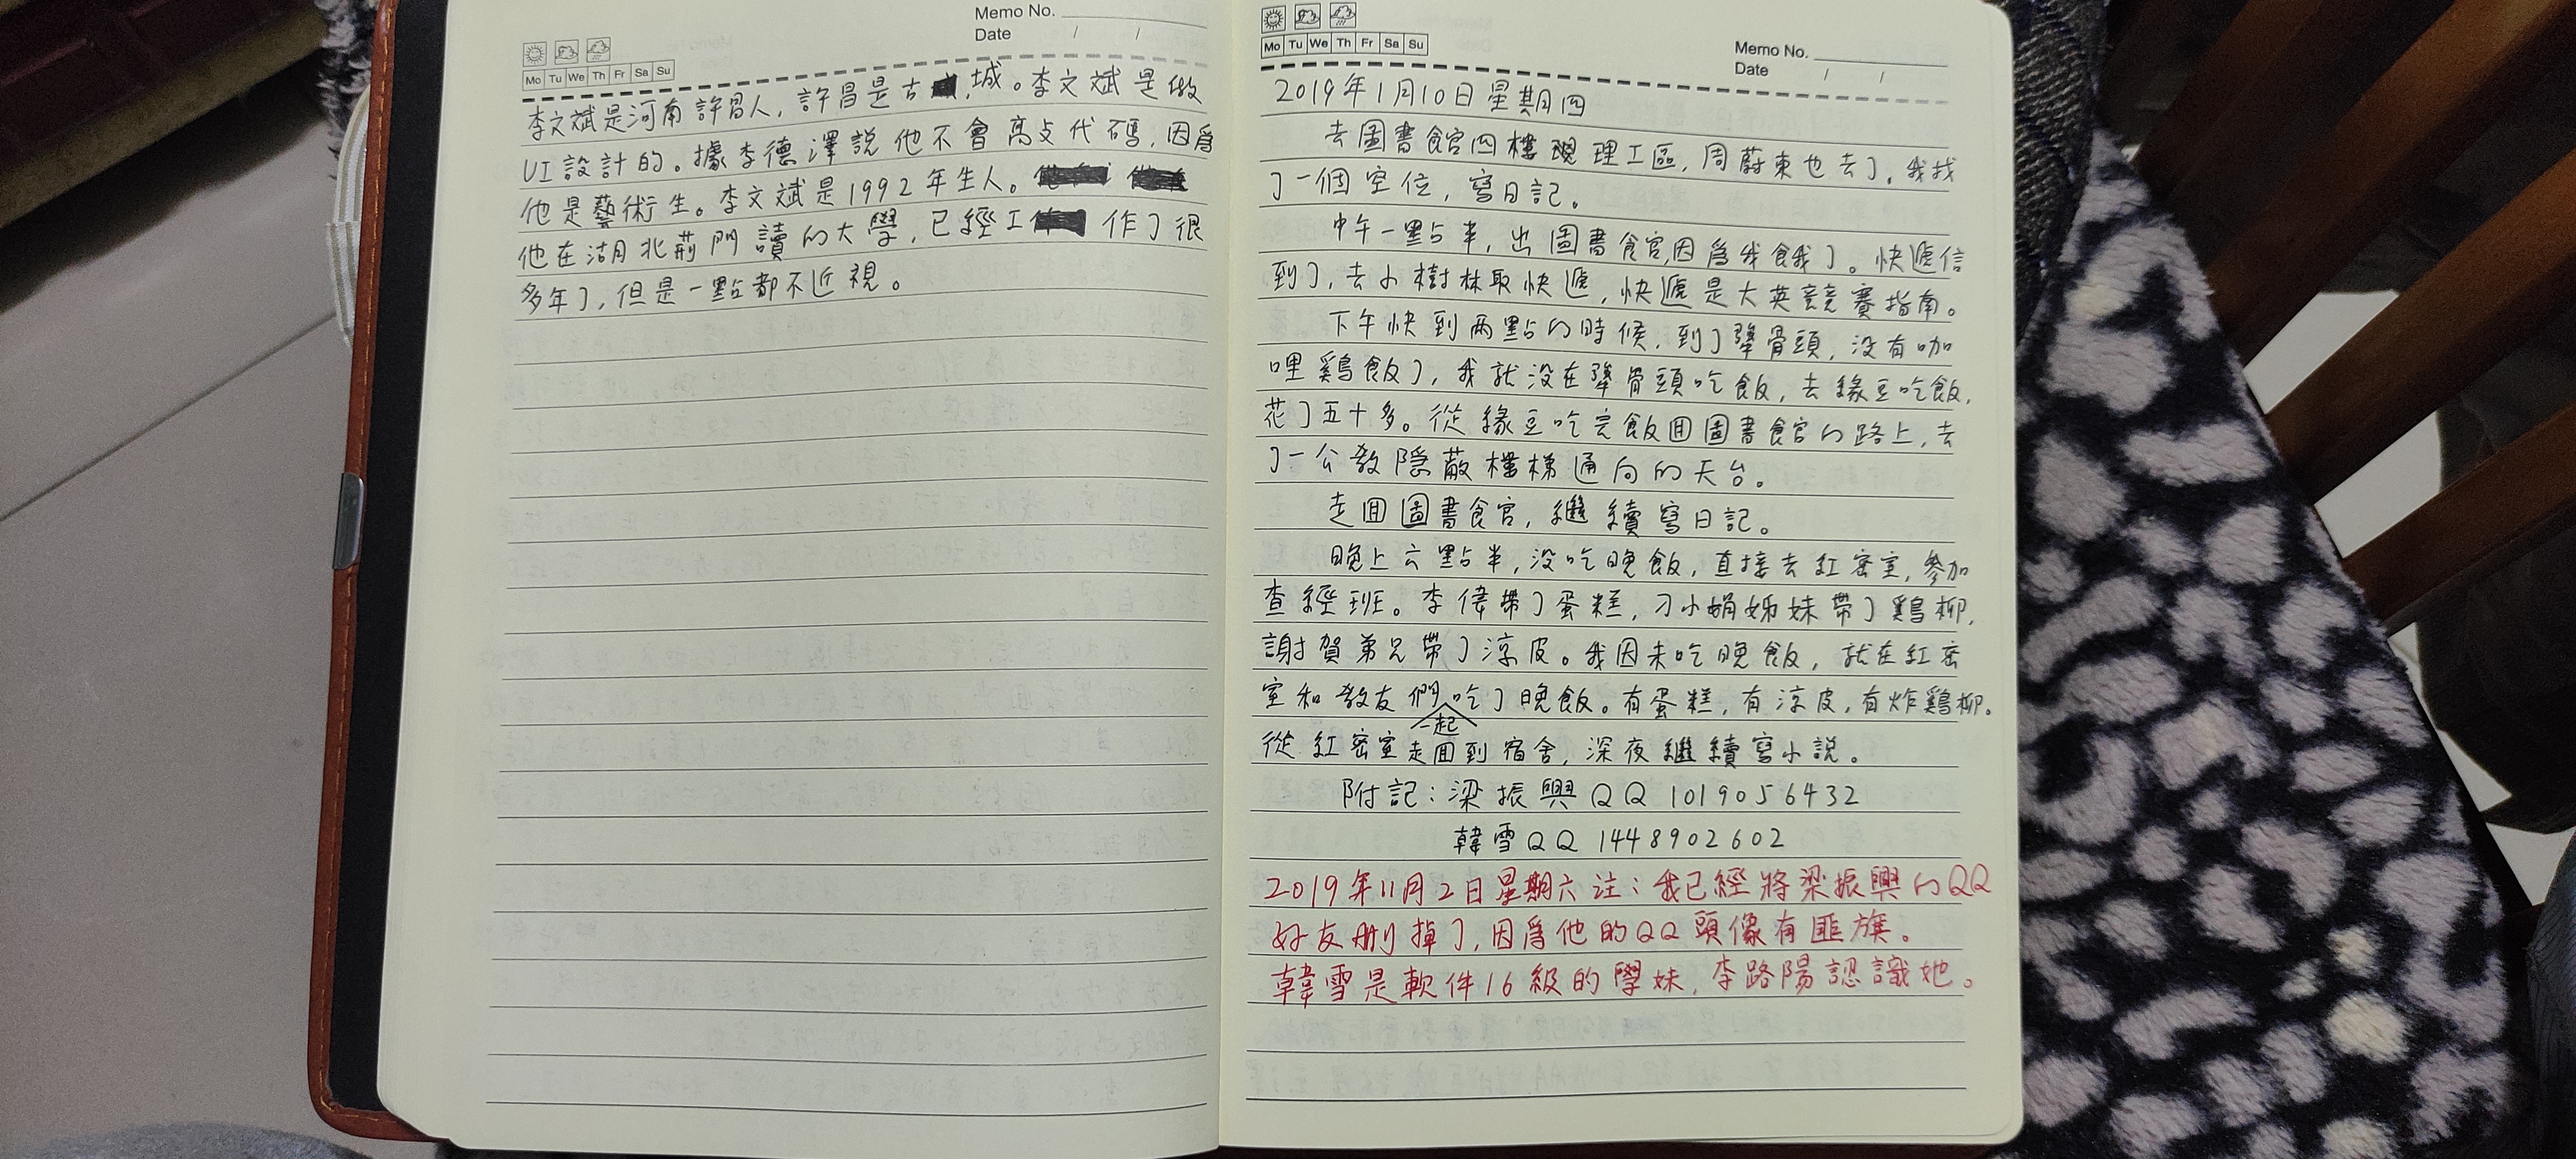 Memo No.
Date / /
Mo Tu We Th Fr Sa Su
李文斌是河南許昌人，許昌是古城。李文斌是做
UI設計的。據李德澤說他不會高支代碼，因爲
他是藝術生。李文斌是1992年生人。
他在湖北荊門讀的大學，已經工作了很
多年了，但是一點都不近視。
Mo Tu We Th Fr Sa Su
Memo No.
Date / /
2019年1月10日星期四
去圖書館四樓理工區，周蔚東也去了。我找
了一個空位，寫日記。
中午一點半，出圖書館，因爲我餓了。快遞信
到了，去小樹林取快遞，快遞是大英競賽指南。
下午快到兩點的時候，到了犟骨頭，没有咖
哩鷄飯了，我就没在犟骨頭吃飯，去緣豆吃飯，
花了五十多。從緣豆吃完飯囬圖書館的路上，去
了一公教隐蔽樓梯通向的天台。
走囬圖書館，繼續寫日記。
晚上六點半，没吃晚飯，直接去紅密室，參加
查經班。李偉帶了蛋糕，刁小娟姊妹帶了鷄柳，
謝賀弟兄帶了涼皮。我因未吃晚飯，就在紅密
室和教友們一起吃了晚飯。有蛋糕，有涼皮，有炸鷄柳。
從紅密室走囬到宿舍，深夜繼續寫小説。
附記：梁振興QQ 1019056432
韓雪QQ 1448902602
2019年11月2日星期六注：我已經將梁振興的QQ
好友刪掉了，因爲他的QQ頭像有匪旗。
韓雪是軟件16級的學妹，李路陽認識她。